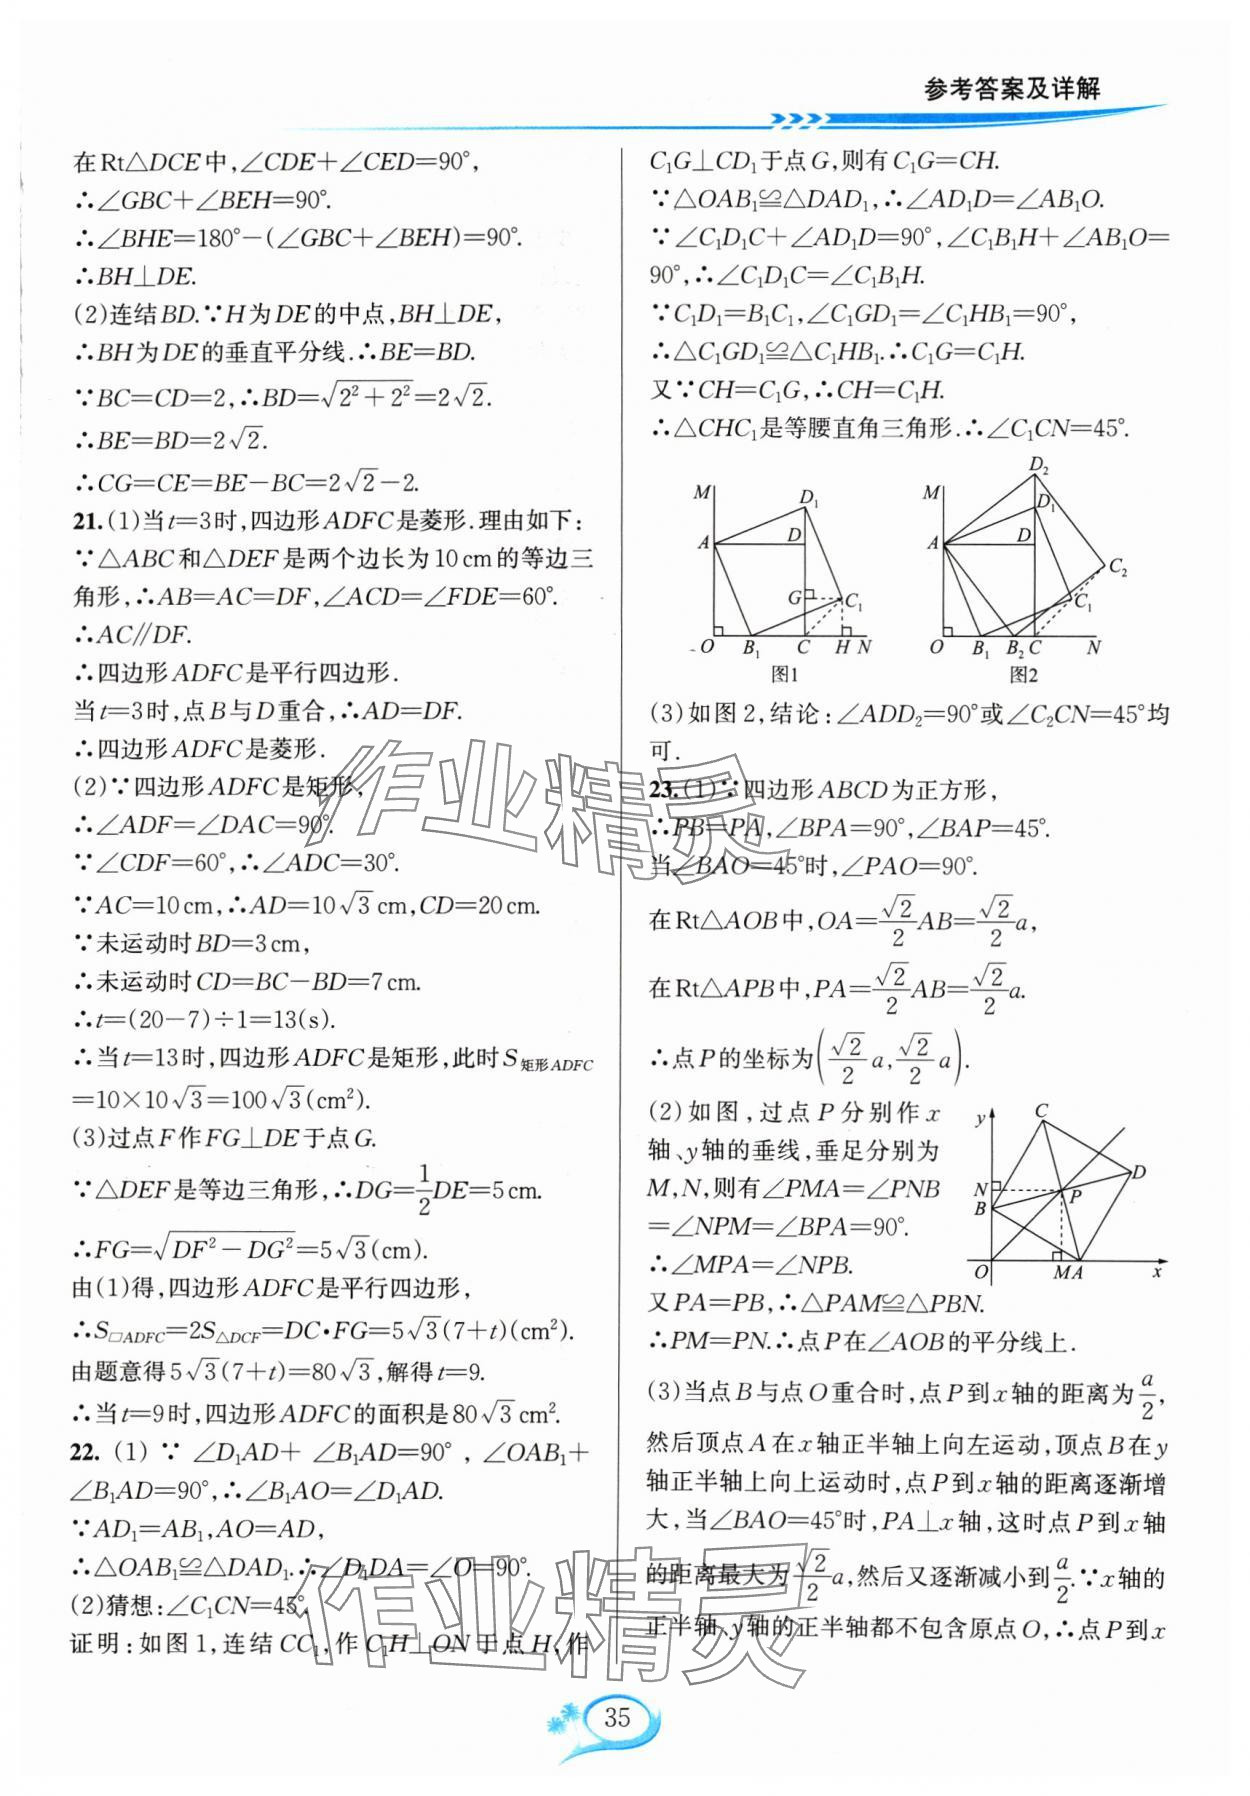 参考答案及详解
在Rt△DCE中,∠CDE+∠CED=90°,
∴∠GBC+∠BEH=90°.
∴∠BHE=180°-(∠GBC+∠BEH)=90°.
∴BH⊥DE.
(2)连结BD.∵H为DE的中点,BH⊥DE,
∴BH为DE的垂直平分线.∴BE=BD.
∵BC=CD=2,∴BD=√(2²+2²)=2√2.
∴BE=BD=2√2.
∴CG=CE=BE-BC=2√2-2.
21.(1)当t=3时,四边形ADFC是菱形.理由如下:
∵△ABC和△DEF是两个边长为10cm的等边三
角形,∴AB=AC=DF,∠ACD=∠FDE=60°.
∴AC∥DF.
∴四边形ADFC是平行四边形.
当t=3时,点B与D重合,∴AD=DF.
∴四边形ADFC是菱形.
(2)∵四边形ADFC是矩形,
∴∠ADF=∠DAC=90°.
∵∠CDF=60°,∴∠ADC=30°.
∵AC=10cm,∴AD=10√3cm,CD=20cm.
∵未运动时BD=3cm,
∴未运动时CD=BC-BD=7cm.
∴t=(20-7)÷1=13(s).
∴当t=13时,四边形ADFC是矩形,此时S矩形ADFC
=10×10√3=100√3(cm²).
(3)过点F作FG⊥DE于点G.
∵△DEF是等边三角形,∴DG=1/2DE=5cm.
∴FG=√(DF²-DG²)=5√3(cm).
由(1)得,四边形ADFC是平行四边形,
∴S□ADFC=2S△DCF=DC·FG=5√3(7+t)(cm²).
由题意得5√3(7+t)=80√3,解得t=9.
∴当t=9时,四边形ADFC的面积是80√3cm².
22. (1) ∵ ∠D₁AD+ ∠B₁AD=90° , ∠OAB₁+
∠B₁AD=90°,∴∠B₁AO=∠D₁AD.
∵AD₁=AB₁,AO=AD,
∴△OAB₁≌△DAD₁.∴∠D₁DA=∠O=90°.
(2)猜想:∠C₁CN=45°.
证明:如图1,连结CC₁,作C₁H⊥ON于点H,作
C₁G⊥CD₁于点G,则有C₁G=CH.
∵△OAB₁≌△DAD₁,∴∠AD₁D=∠AB₁O.
∵∠C₁D₁C+∠AD₁D=90°,∠C₁B₁H+∠AB₁O=
90°,∴∠C₁D₁C=∠C₁B₁H.
∵C₁D₁=B₁C₁,∠C₁GD₁=∠C₁HB₁=90°,
∴△C₁GD₁≌△C₁HB₁.∴C₁G=C₁H.
又∵CH=C₁G,∴CH=C₁H.
∴△CHC₁是等腰直角三角形.∴∠C₁CN=45°.
M D₁ A D G C₁ O B₁ C H N
图1
D₂ M D₁ A D C₂ C₁ O B₁ B₂ C N
图2
(3)如图2,结论:∠ADD₂=90°或∠C₂CN=45°均
可.
23.(1)∵四边形ABCD为正方形,
∴PB=PA,∠BPA=90°,∠BAP=45°.
当∠BAO=45°时,∠PAO=90°.
在Rt△AOB中,OA=√2/2AB=√2/2a,
在Rt△APB中,PA=√2/2AB=√2/2a.
∴点P的坐标为(√2/2a,√2/2a).
(2)如图,过点P分别作x
轴、y轴的垂线,垂足分别为
M,N,则有∠PMA=∠PNB
=∠NPM=∠BPA=90°.
∴∠MPA=∠NPB.
y C D N P B O M A x
又PA=PB,∴△PAM≌△PBN.
∴PM=PN.∴点P在∠AOB的平分线上.
(3)当点B与点O重合时,点P到x轴的距离为a/2,
然后顶点A在x轴正半轴上向左运动,顶点B在y
轴正半轴上向上运动时,点P到x轴的距离逐渐增
大,当∠BAO=45°时,PA⊥x轴,这时点P到x轴
的距离最大为√2/2a,然后又逐渐减小到a/2.∵x轴的
正半轴、y轴的正半轴都不包含原点O,∴点P到x
作业精灵
作业精灵
35